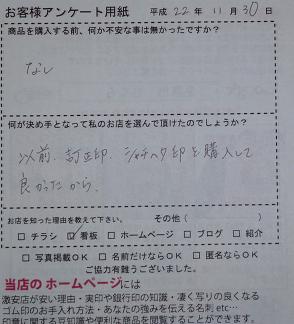 お客様アンケート用紙 平成 22年 11月 30日
商品を購入する前、何か不安な事は無かったですか？
なし
何が決め手となって私のお店を選んで頂けたのでしょうか？
以前、訂正印、シャチハタ印を購入して
良かったから。
お店を知った理由を教えて下さい。 その他（ ）
□ チラシ ☑ 看板 □ ホームページ □ ブログ □ 紹介
□ 写真掲載OK □ 名前だけならOK □ 匿名ならOK
ご協力有難うございました。
当店の ホームページには
激安店が安い理由・実印や銀行印の知識・凄く写りの良くなる
ゴム印のお手入れ方法・あなたの強みを伝える名刺 etc…
印章に関する豆知識や便利な商品を閲覧することができます。